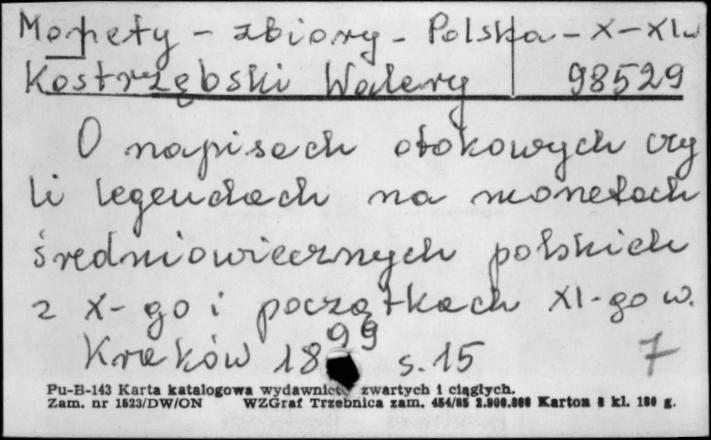 Monety - zbiory - Polska - X-XI w
Kostrzębski Walery 98529
O napisach otokowych czy
li legendach na monetach
średniowiecznych polskich
z X-go i początkach XI-go w.
Kraków 1899 s. 15 7
Pu-B-143 Karta katalogowa wydawnictw zwartych i ciągłych.
Zam. nr 1523/DW/ON WZGraf Trzebnica zam. 454/85 2.900.000 Karton 8 kl. 180 g.